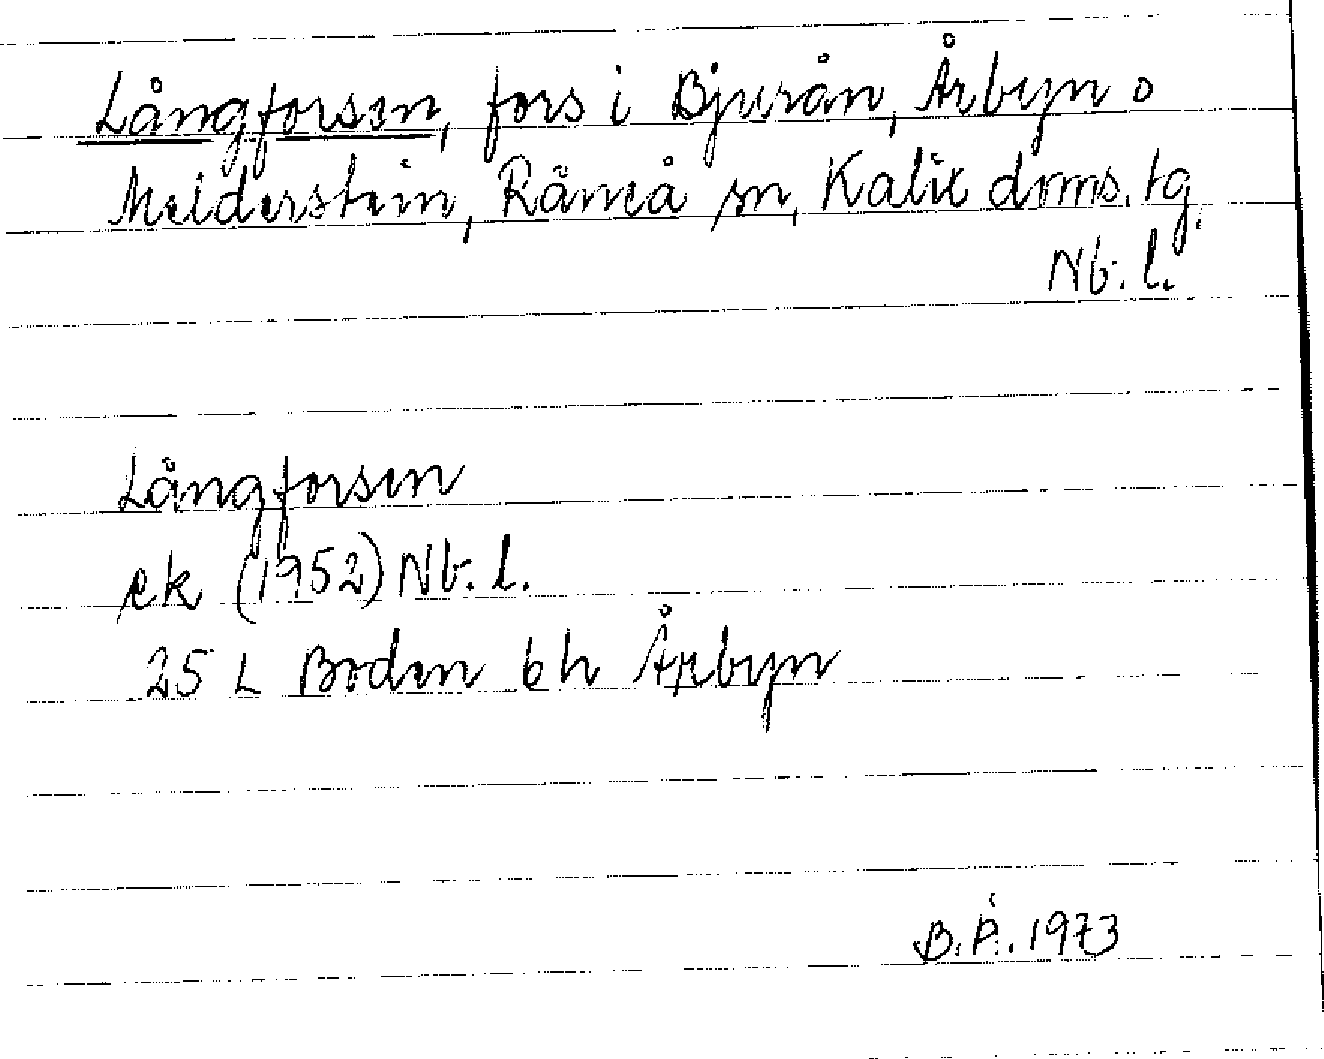 Långforsen, fors i Bjurån, Årbyn o
Meiderstein, Råneå sn, Kalix doms. tg.
Nb. l.
Långforsen
ek (1952) Nb. l.
25 L Boden bh Årbyn
B. Å. 1973